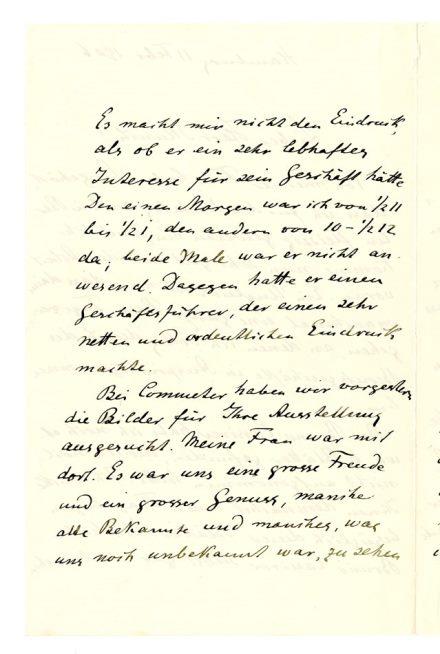 Es macht mir nicht den Eindruck,
als ob er ein sehr lebhaftes
Interesse für sein Geschäft hätte
Den einen Morgen war ich von 1/2 11
bis 1/2 1, den andern von 10 - 1/2 12
da; beide Male war er nicht an
wesend. Dagegen hatte er einen
Geschäftsführer, der einen sehr
netten und ordentlichen Eindruck
machte.
Bei Commeter haben wir vorgestern
die Bilder für Ihre Ausstellung
ausgesucht. Meine Frau war mit
dort. Es war uns eine grosse Freude
und ein grosser Genuss, manche
alte Bekannte und manches, was
uns noch unbekannt war, zu sehen